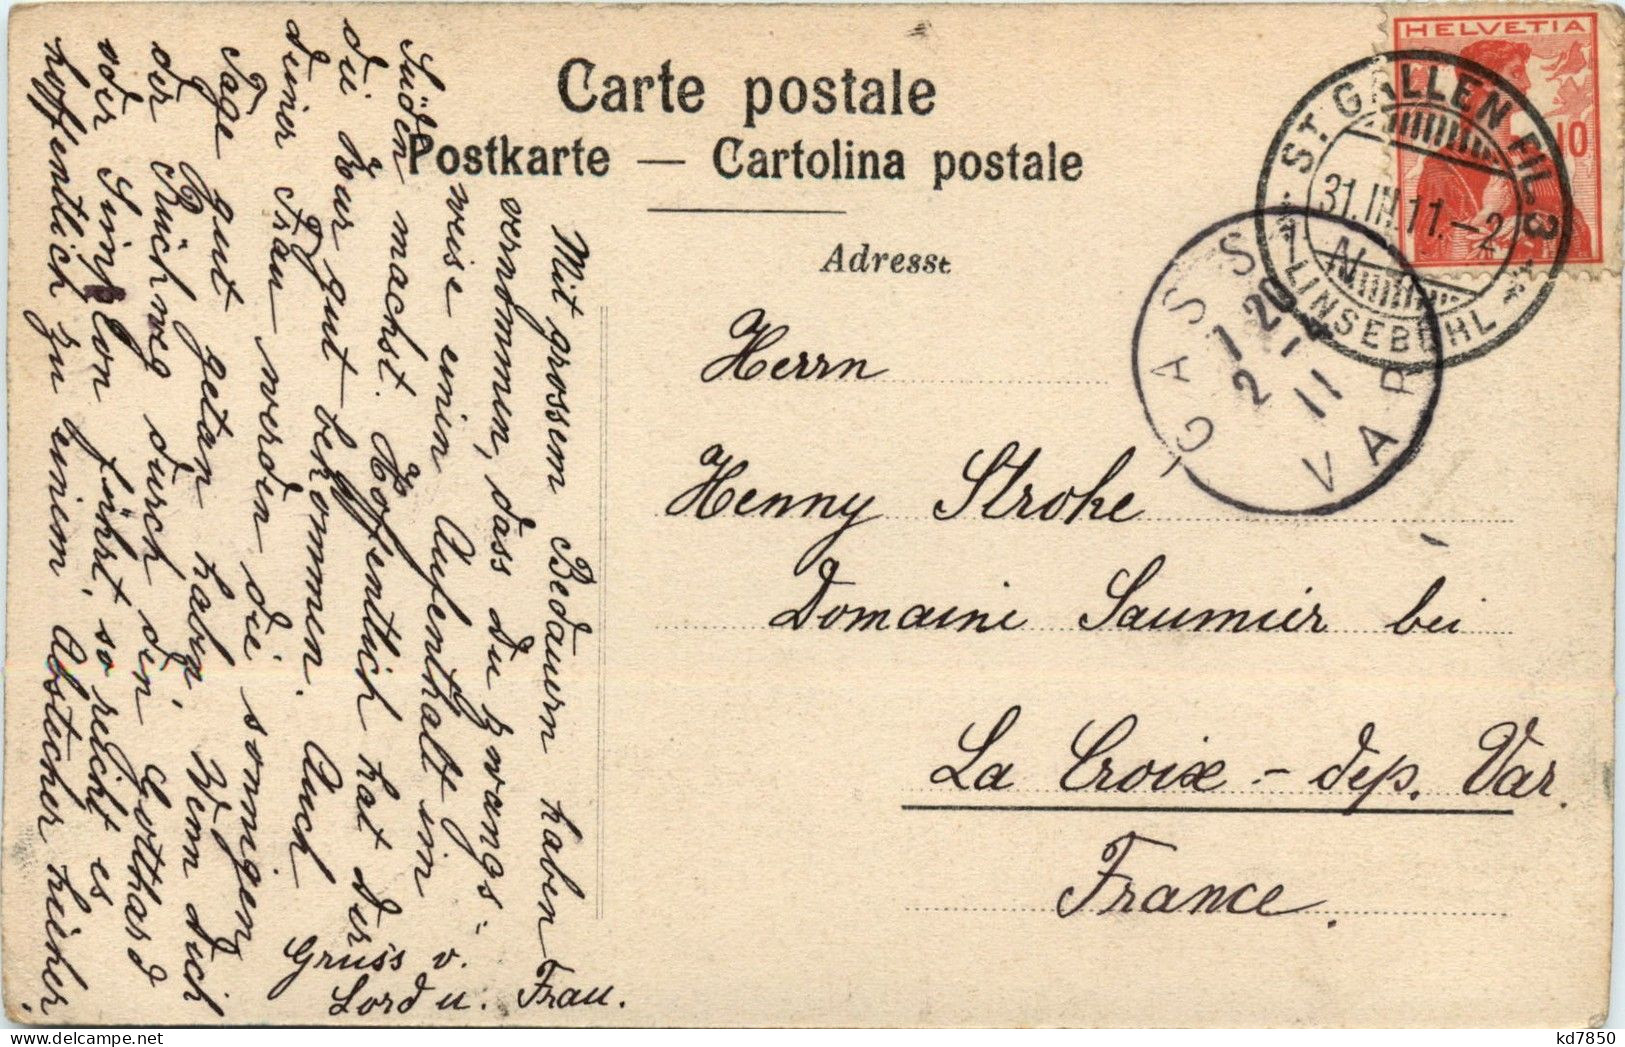 Carte postale
Postkarte — Cartolina postale
Adresse
HELVETIA
10
ST. GALLEN FIL. 3
31.III.11.–2
LINSEBÜHL
GASSIN
1 20
2 - 4
11
VAR
Herrn
Henny Stroke
Domaine Saumier bei
La Croix – dep. Var.
France.
Mit grossem Bedauern haben
vernommen, dass du zwangs=
weise einen Aufenthalt im
Süden machst. Hoffentlich hat dir
die Kur gut bekommen. Auch
deiner Frau werden die sonnigen
Tage gut getan haben. Wenn dich
der Rückweg durch den Gotthard
oder Simplon führt, so reicht es
hoffentlich zu einem Abstecher hieher.
Gruss v.
Lord u. Frau.
kd7850